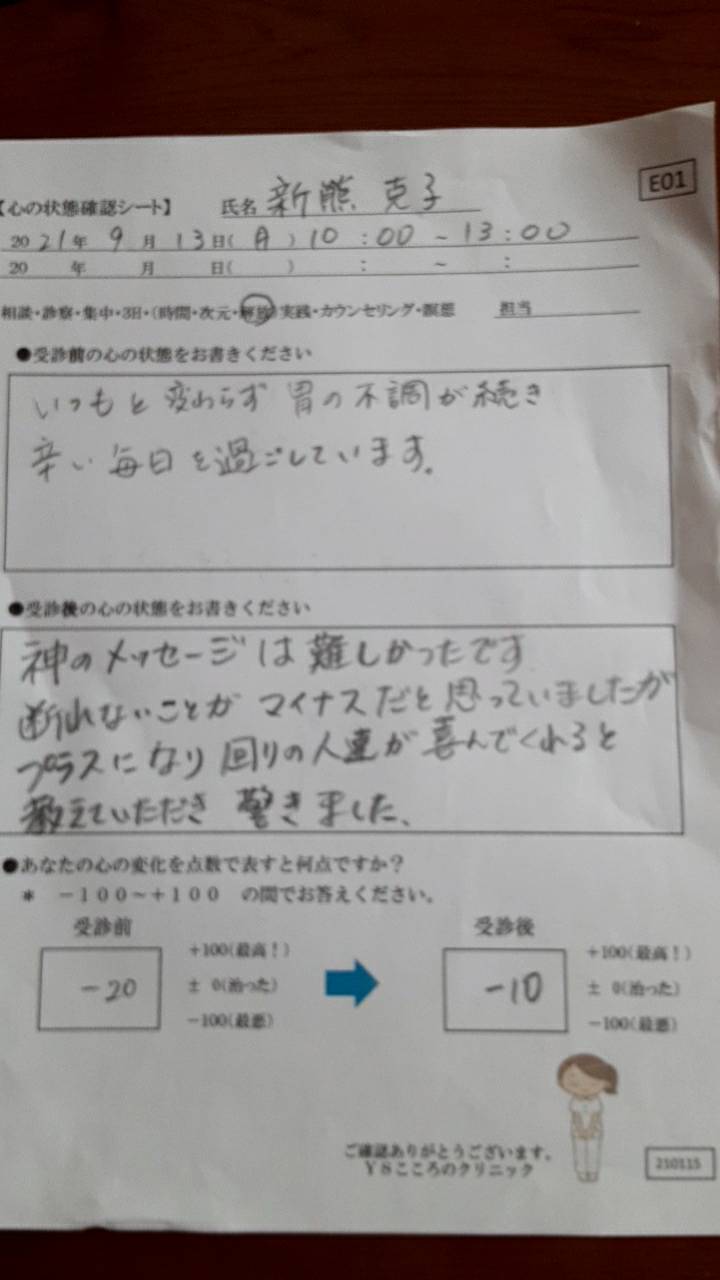 E01
【心の状態確認シート】 氏名 新熊 克子
2021年 9月 13日(月) 10:00 ~ 13:00
20 年 月 日( ) : ~ :
相談・診察・集中・3日・(時間・次元・解放)実践・カウンセリング・瞑想 担当
●受診前の心の状態をお書きください
いつもと変わらず胃の不調が続き
辛い毎日を過ごしています。
●受診後の心の状態をお書きください
神のメッセージは難しかったです
断れないことがマイナスだと思っていましたが
プラスになり回りの人達が喜んでくれると
教えていただき驚きました、
●あなたの心の変化を点数で表すと何点ですか?
* -100~+100 の間でお答えください。
受診前 受診後
+100(最高!) +100(最高!)
-20 ± 0(治った) -10 ± 0(治った)
-100(最悪) -100(最悪)
ご確認ありがとうございます。
YSこころのクリニック
210115